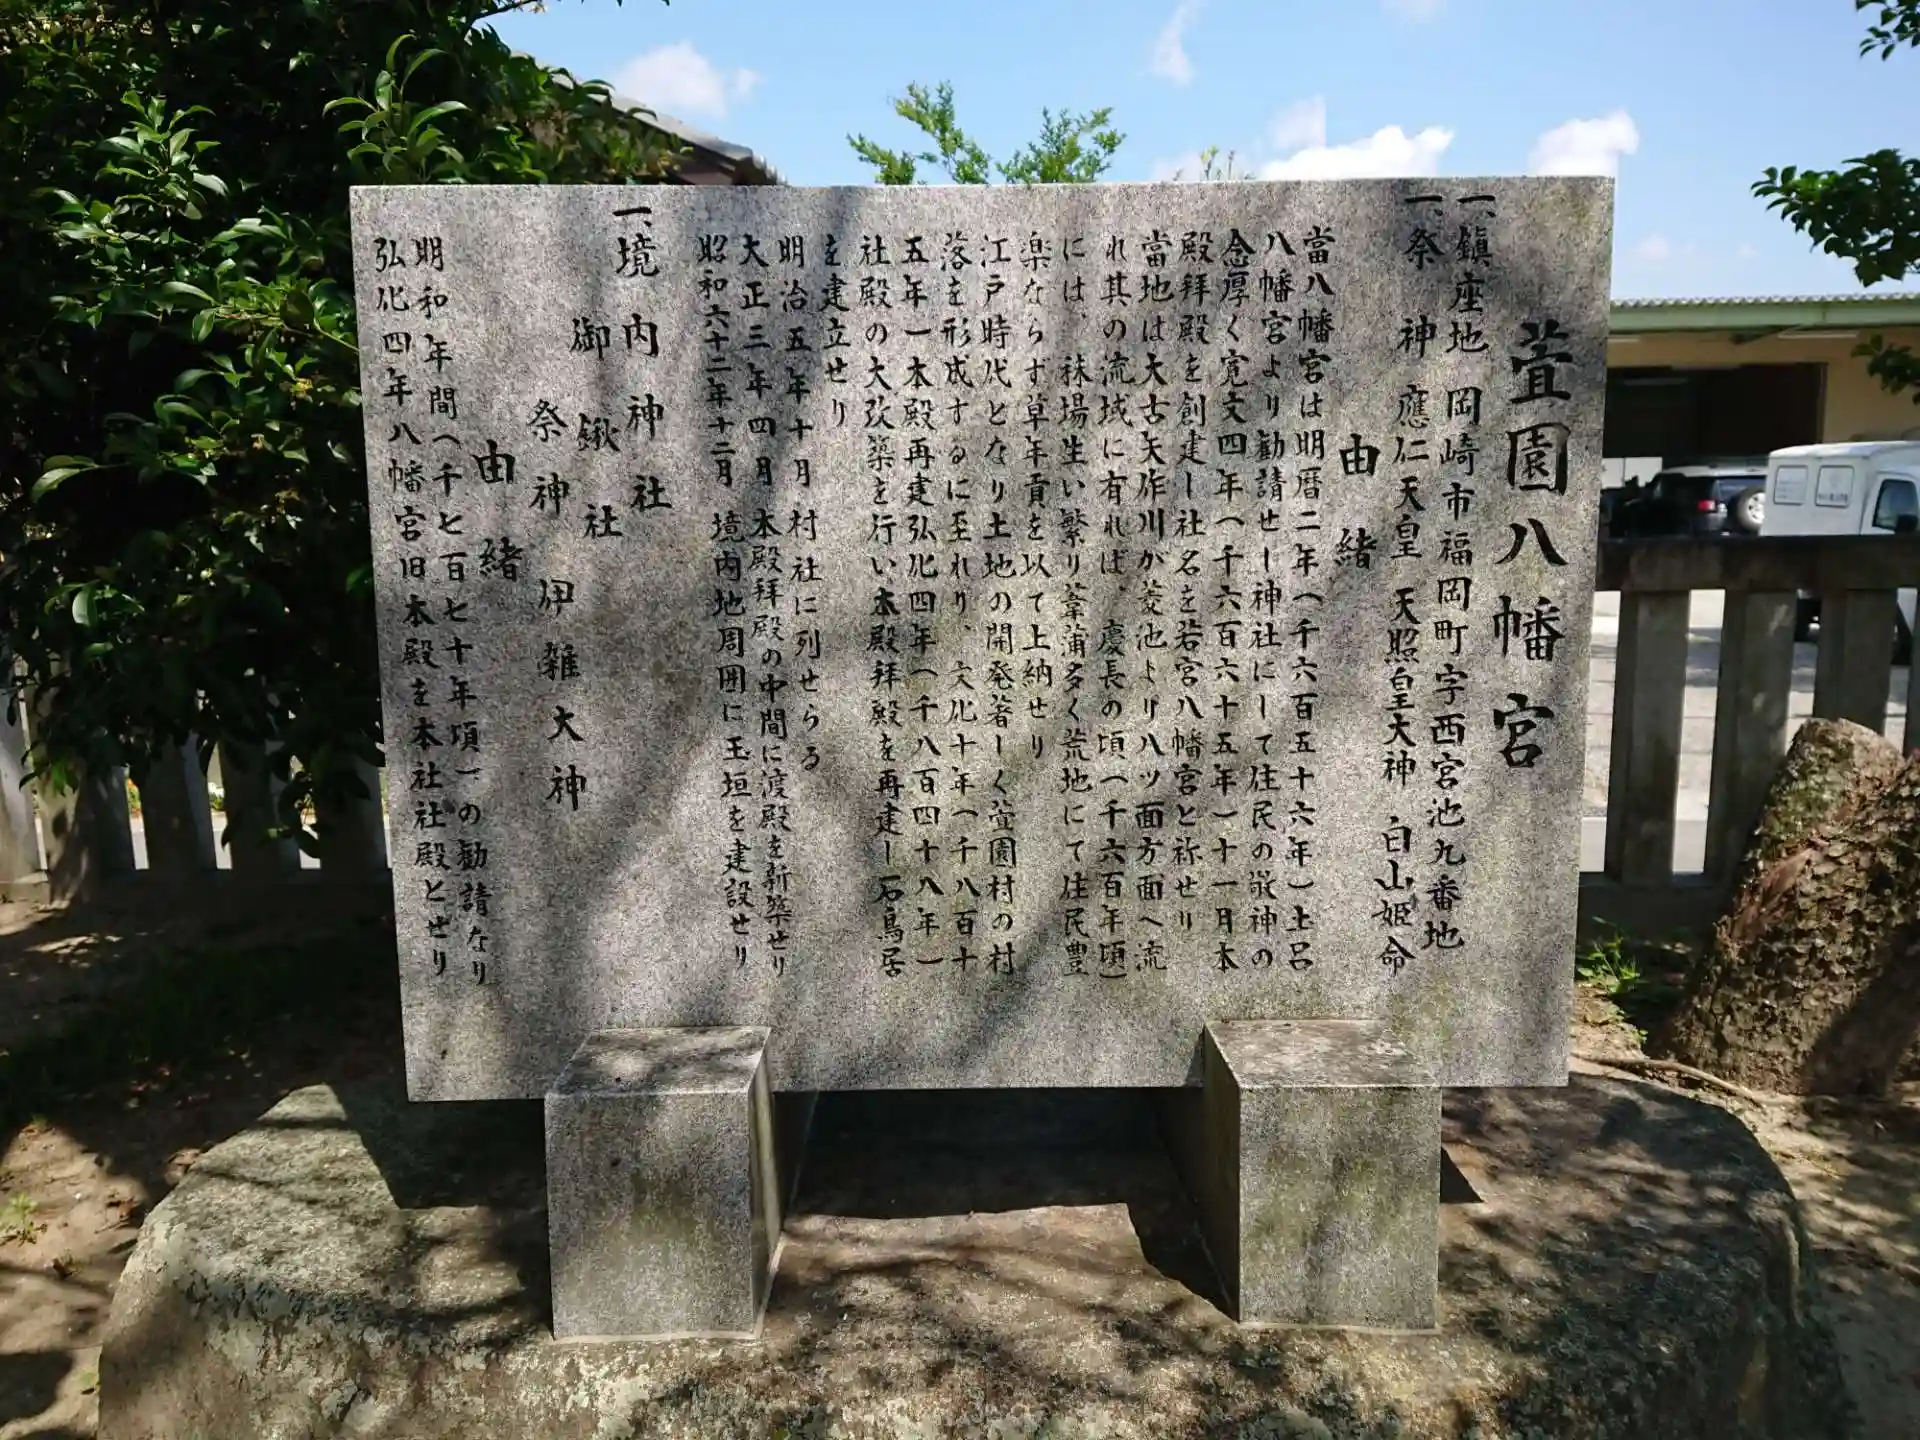 萱園八幡宮
一、鎮座地 岡崎市福岡町字西宮池九番地
一、祭神 應仁天皇 天照皇大神 白山姫命
由緒
當八幡宮は明暦二年(千六百五十六年)土呂
八幡宮より勧請せし神社にして住民の敬神の
念厚く寛文四年(千六百六十五年)十一月本
殿拝殿を創建し社名を若宮八幡宮と称せり
當地は大古矢作川が菱池より八ツ面方面へ流
れ其の流域に有れば、慶長の頃(千六百年頃)
には、秣場生い繁り葦蒲多く荒地にて住民豊
楽ならず草年貢を以て上納せり
江戸時代となり土地の開発著しく萱園村の村
落を形成するに至れり、文化十年(千八百十
五年)本殿再建弘化四年(千八百四十八年)
社殿の大改築を行い本殿拝殿を再建し石鳥居
を建立せり
明治五年十月村社に列せらる
大正三年四月本殿拝殿の中間に渡殿を新築せり
昭和六十二年十二月境内地周囲に玉垣を建設せり
一、境内神社
御鍬社
祭神 伊雜大神
由緒
明和年間(千七百七十年頃)の勧請なり
弘化四年八幡宮旧本殿を本社社殿とせり